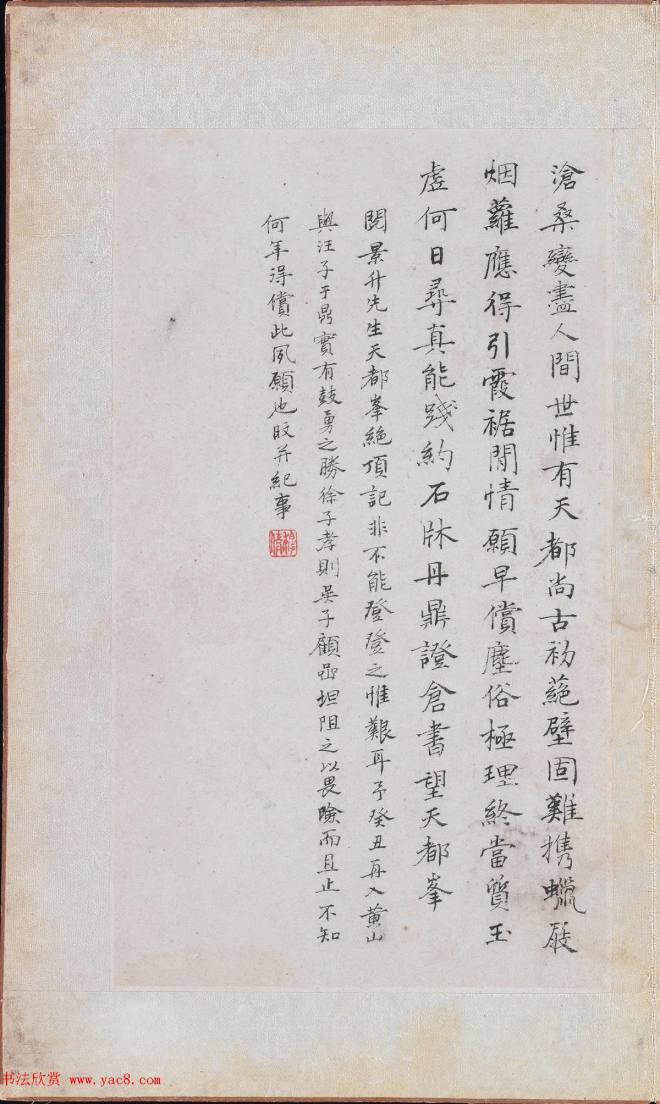 滄桑變盡人間世惟有天都尚古初蒓壁固難携蠟屐
烟蘿應得引霞裾閒情願早償塵俗極理終當質玉
虛何日尋真能踐約石牀丹鼎證倉書望天都峯
閱景升先生天都峯絶頂記非不能登登之惟艱耳予癸丑再入黃山
與汪子于鼎實有鼓勇之勝徐子孝則吳子顧坦阻之以畏險而且止不知
何年得償此夙願也旼并紀事
书法欣赏 www.yac8.com